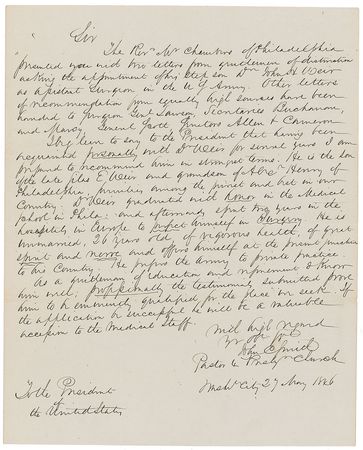 Sir
The Revd Mr Chambers of Philadelphia
presented you with two letters from gentlemen of distinction
asking the appointment of his step son Dr John H Weir
as assistant Surgeon in the U S Army. Other letters
of recommendation from equally high sources have been
handed to Surgeon Genl Lawson, Secretaries Buchanan,
and Marcy, General Scott Senators Allen & Cameron
I beg leave to say to the President that having been
acquainted personally with Dr Weir for several years I am
prepared to recommend him in strongest terms. He is the son
of the late Silas E Weir and grandson of Alexr Henry of
Philadelphia, families among the first and best in our
Country. Dr Weir graduated with honor in the Medical
school in Phila: and afterwards spent two years in the
hospitals in Europe to perfect himself in Surgery. He is
unmarried, 26 years old, of vigorous health, of great
spirit and nerve and offers himself at the present juncture
to his Country. He prefers the Army to private practice.
As a gentleman of education and refinement I know
him well; professionally the testimonials submitted prove
him to be eminently qualified for the place he seeks. If
the application be successful he will be a valuable
accession to the Medical Staff.
With high regard
John C Smith
Pastor 4 Presbyn Church
Washn City 27 May 1846
To the President
of
the United States